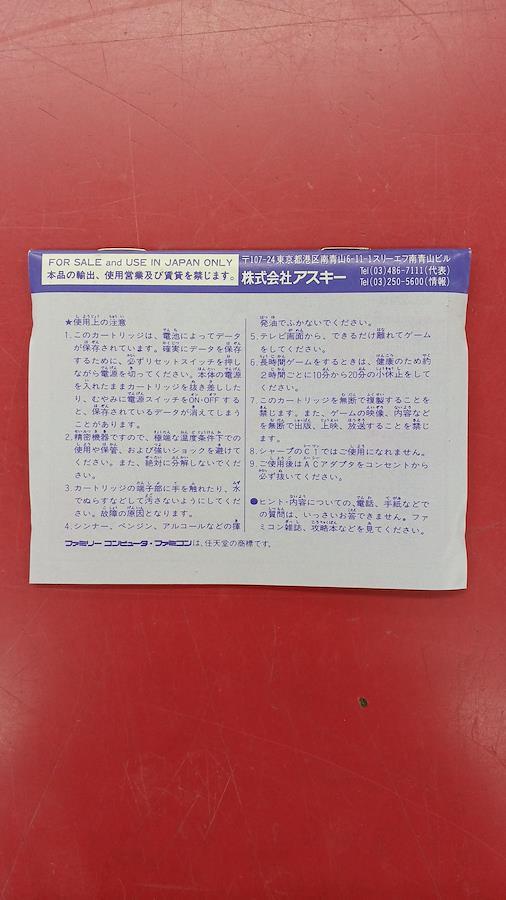 FOR SALE and USE IN JAPAN ONLY
本品の輸出、使用営業及び賃貸を禁じます。
〒107-24東京都港区南青山6-11-1スリーエフ南青山ビル
株式会社アスキー
Tel(03)486-7111(代表)
Tel(03)250-5600(情報)
★使用上の注意
1.このカートリッジは、電池によってデータ
が保存されています。確実にデータを保存
するために、必ずリセットスイッチを押し
ながら電源を切ってください。本体の電源
を入れたままカートリッジを抜き差しした
り、むやみに電源スイッチをON・OFFする
と、保存されているデータが消えてしまう
ことがあります。
2.精密機器ですので、極端な温度条件下での
使用や保管、および強いショックを避けて
ください。また、絶対に分解しないでくだ
さい。
3.カートリッジの端子部に手を触れたり、水
でぬらすなどして汚さないようにしてくだ
さい。故障の原因となります。
4.シンナー、ベンジン、アルコールなどの揮
発油でふかないでください。
5.テレビ画面から、できるだけ離れてゲーム
をしてください。
6.長時間ゲームをするときは、健康のため約
2時間ごとに10分から20分の小休止をして
ください。
7.このカートリッジを無断で複製することを
禁じます。また、ゲームの映像、内容など
を無断で出版、上映、放送することを禁じ
ます。
8.シャープのC1ではご使用になれません。
9.ご使用後はACアダプタをコンセントから
必ず抜いてください。
●ヒント・内容についての、電話、手紙などで
の質問は、いっさいお答えできません。ファ
ミコン雑誌、攻略本などを見てください。
ファミリーコンピュータ・ファミコンは、任天堂の商標です。